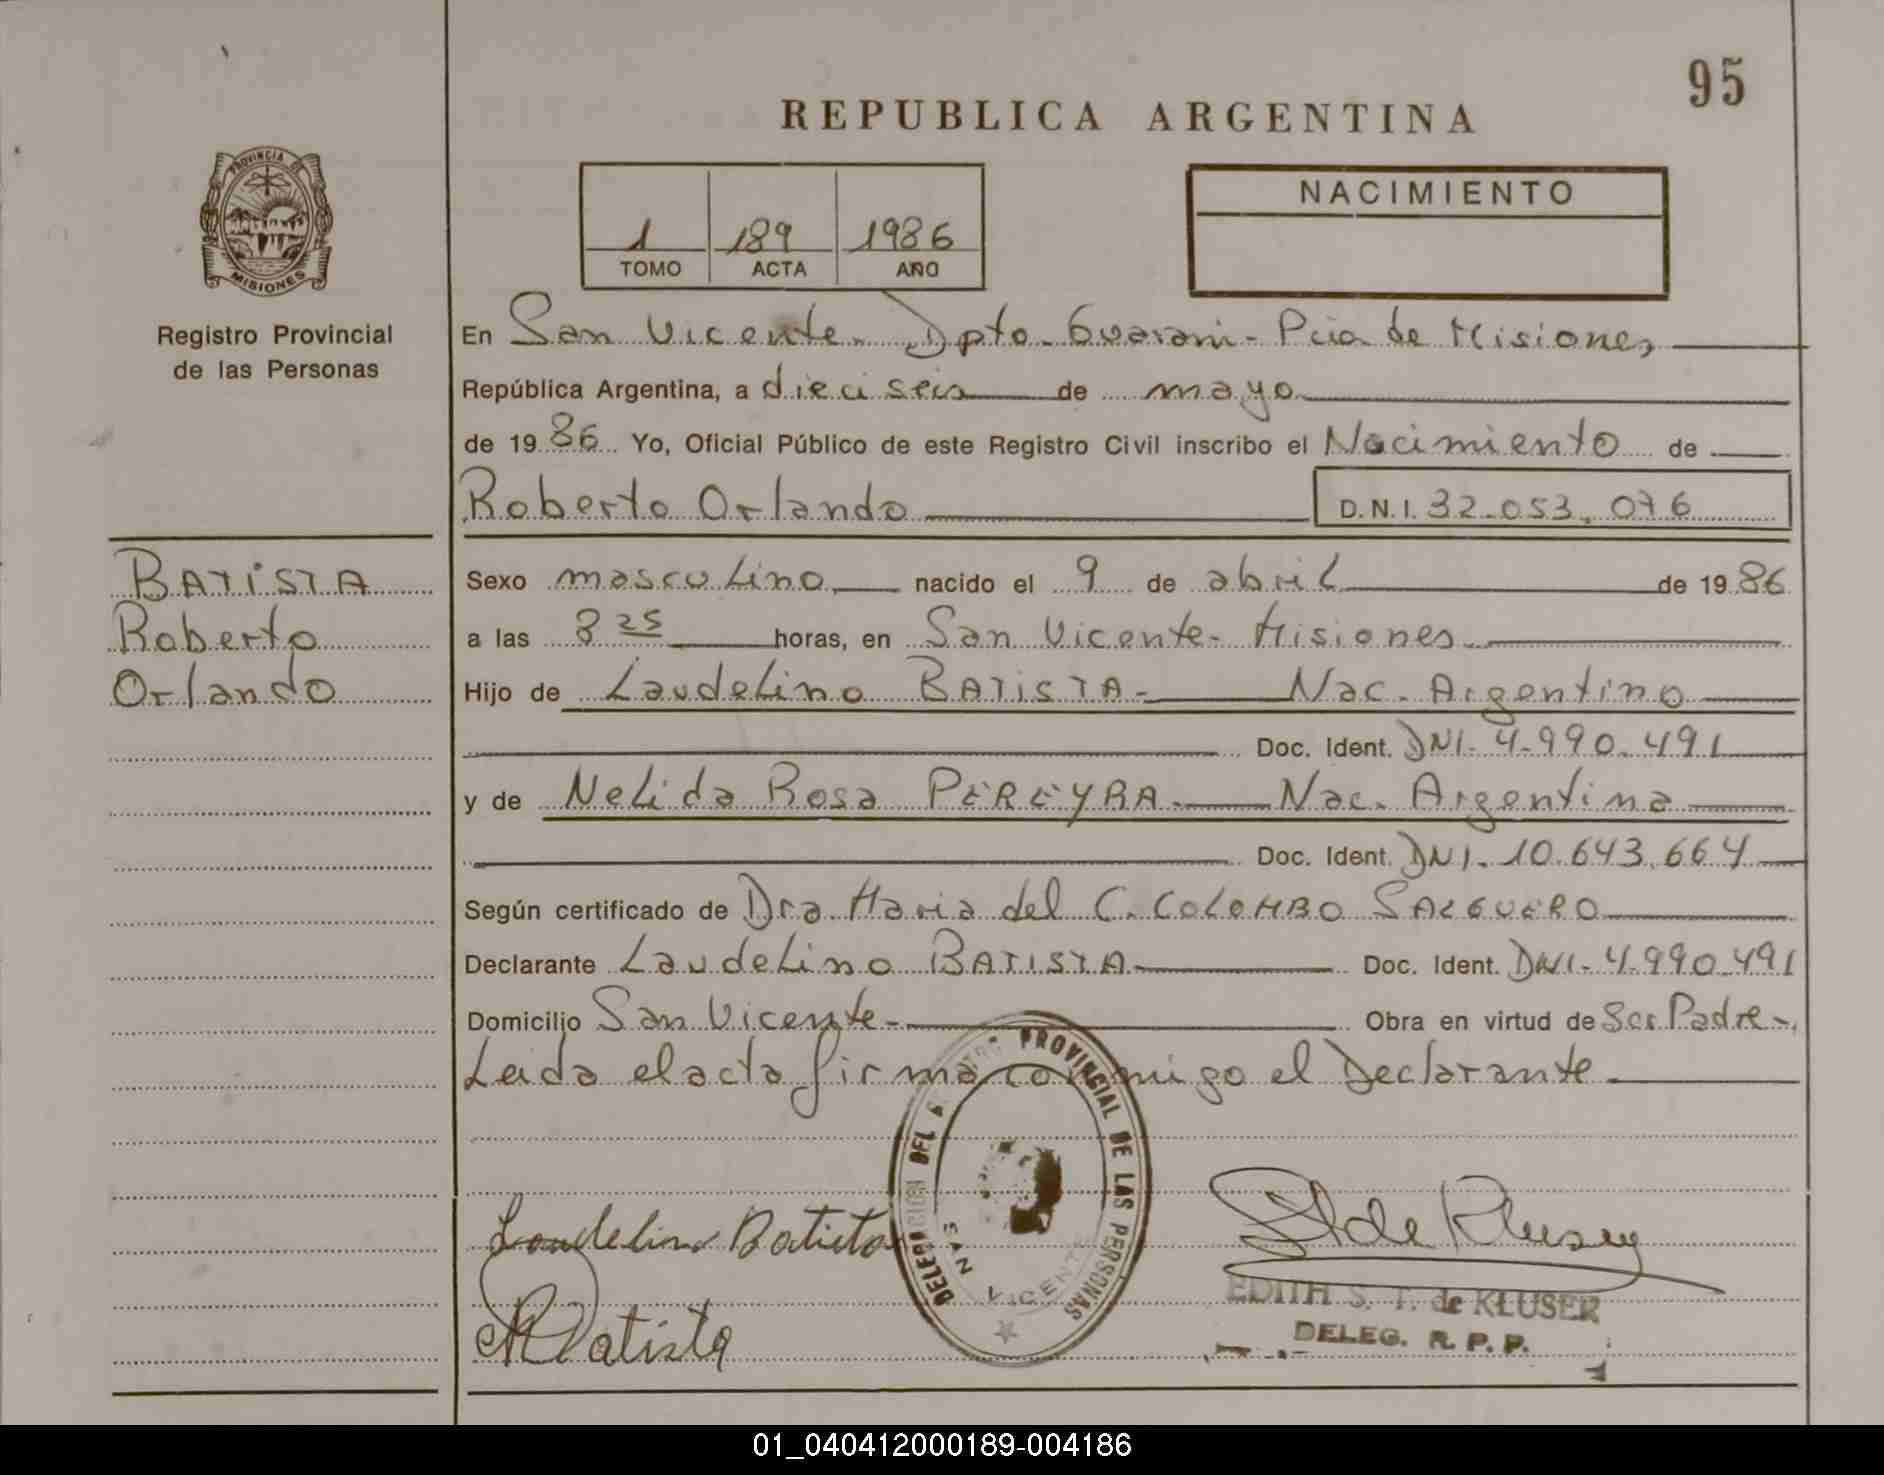 95
REPUBLICA ARGENTINA
PROVINCIA DE
MISIONES
Registro Provincial
de las Personas
1 189 1986
TOMO ACTA AÑO
NACIMIENTO
En San Vicente. Dpto. Guarani - Pcia de Misiones
República Argentina, a dieciseis de mayo
de 1986 Yo, Oficial Público de este Registro Civil inscribo el Nacimiento de
Roberto Orlando D.N.I. 32.053.076
BATISTA
Roberto
Orlando
Sexo masculino nacido el 9 de abril de 1986
a las 8 25 horas, en San Vicente - Misiones
Hijo de Laudelino BATISTA - Nac. Argentino
Doc. Ident. DNI. 4.990.491
y de Nelida Rosa PEREYRA Nac. Argentina
Doc. Ident. DNI. 10.643.664
Según certificado de Dra. Maria del C. COLOMBO SALGUERO
Declarante Laudelino BATISTA Doc. Ident. DNI - 4.990.491
Domicilio San Vicente - Obra en virtud de Ser Padre -
Leida el acta firma conmigo el Declarante
DELEGACION DEL REGISTRO PROVINCIAL DE LAS PERSONAS
SAN VICENTE
Laudelino Batista
Batista
EDITH S. T. de KLUSER
DELEG. R. P. P.
01_040412000189-004186